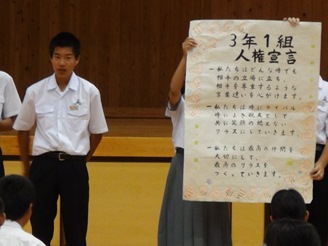 3年1組
人権宣言
一 私たちはどんな時でも
相手の立場に立ち、
相手を尊重するような
言葉遣いを心がけます。
一 私たちは時にライバル
時によき親友として
共に笑顔の絶えない
クラスにしていきます。
一 私たちは最高の仲間を
大切にして、
最高のクラスを
つくっていきます。